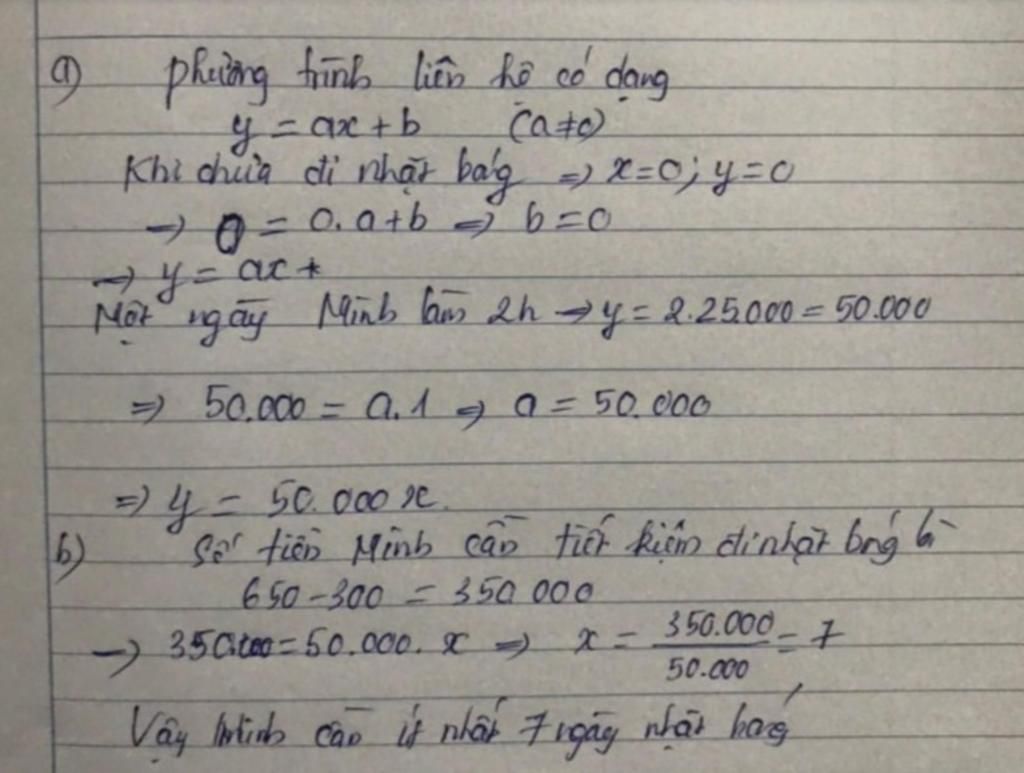 a) phường trình liên hê có dạng
y = ax + b (a ≠ 0)
Khi chưa đi nhặt bóng => x=0; y=0
→ 0 = 0.a + b => b = 0
→ y = ax +
Một ngày Minh làm 2h → y = 2.25.000 = 50.000
=> 50.000 = a.1 => a = 50.000
=> y = 50.000 x.
b) Số tiền Minh cần tiết kiệm đi nhặt bóng là
650 - 300 = 350 000
→ 350.000 = 50.000. x => x = 350.000/50.000 = 7
Vậy Minh cần ít nhất 7 ngày nhặt bóng